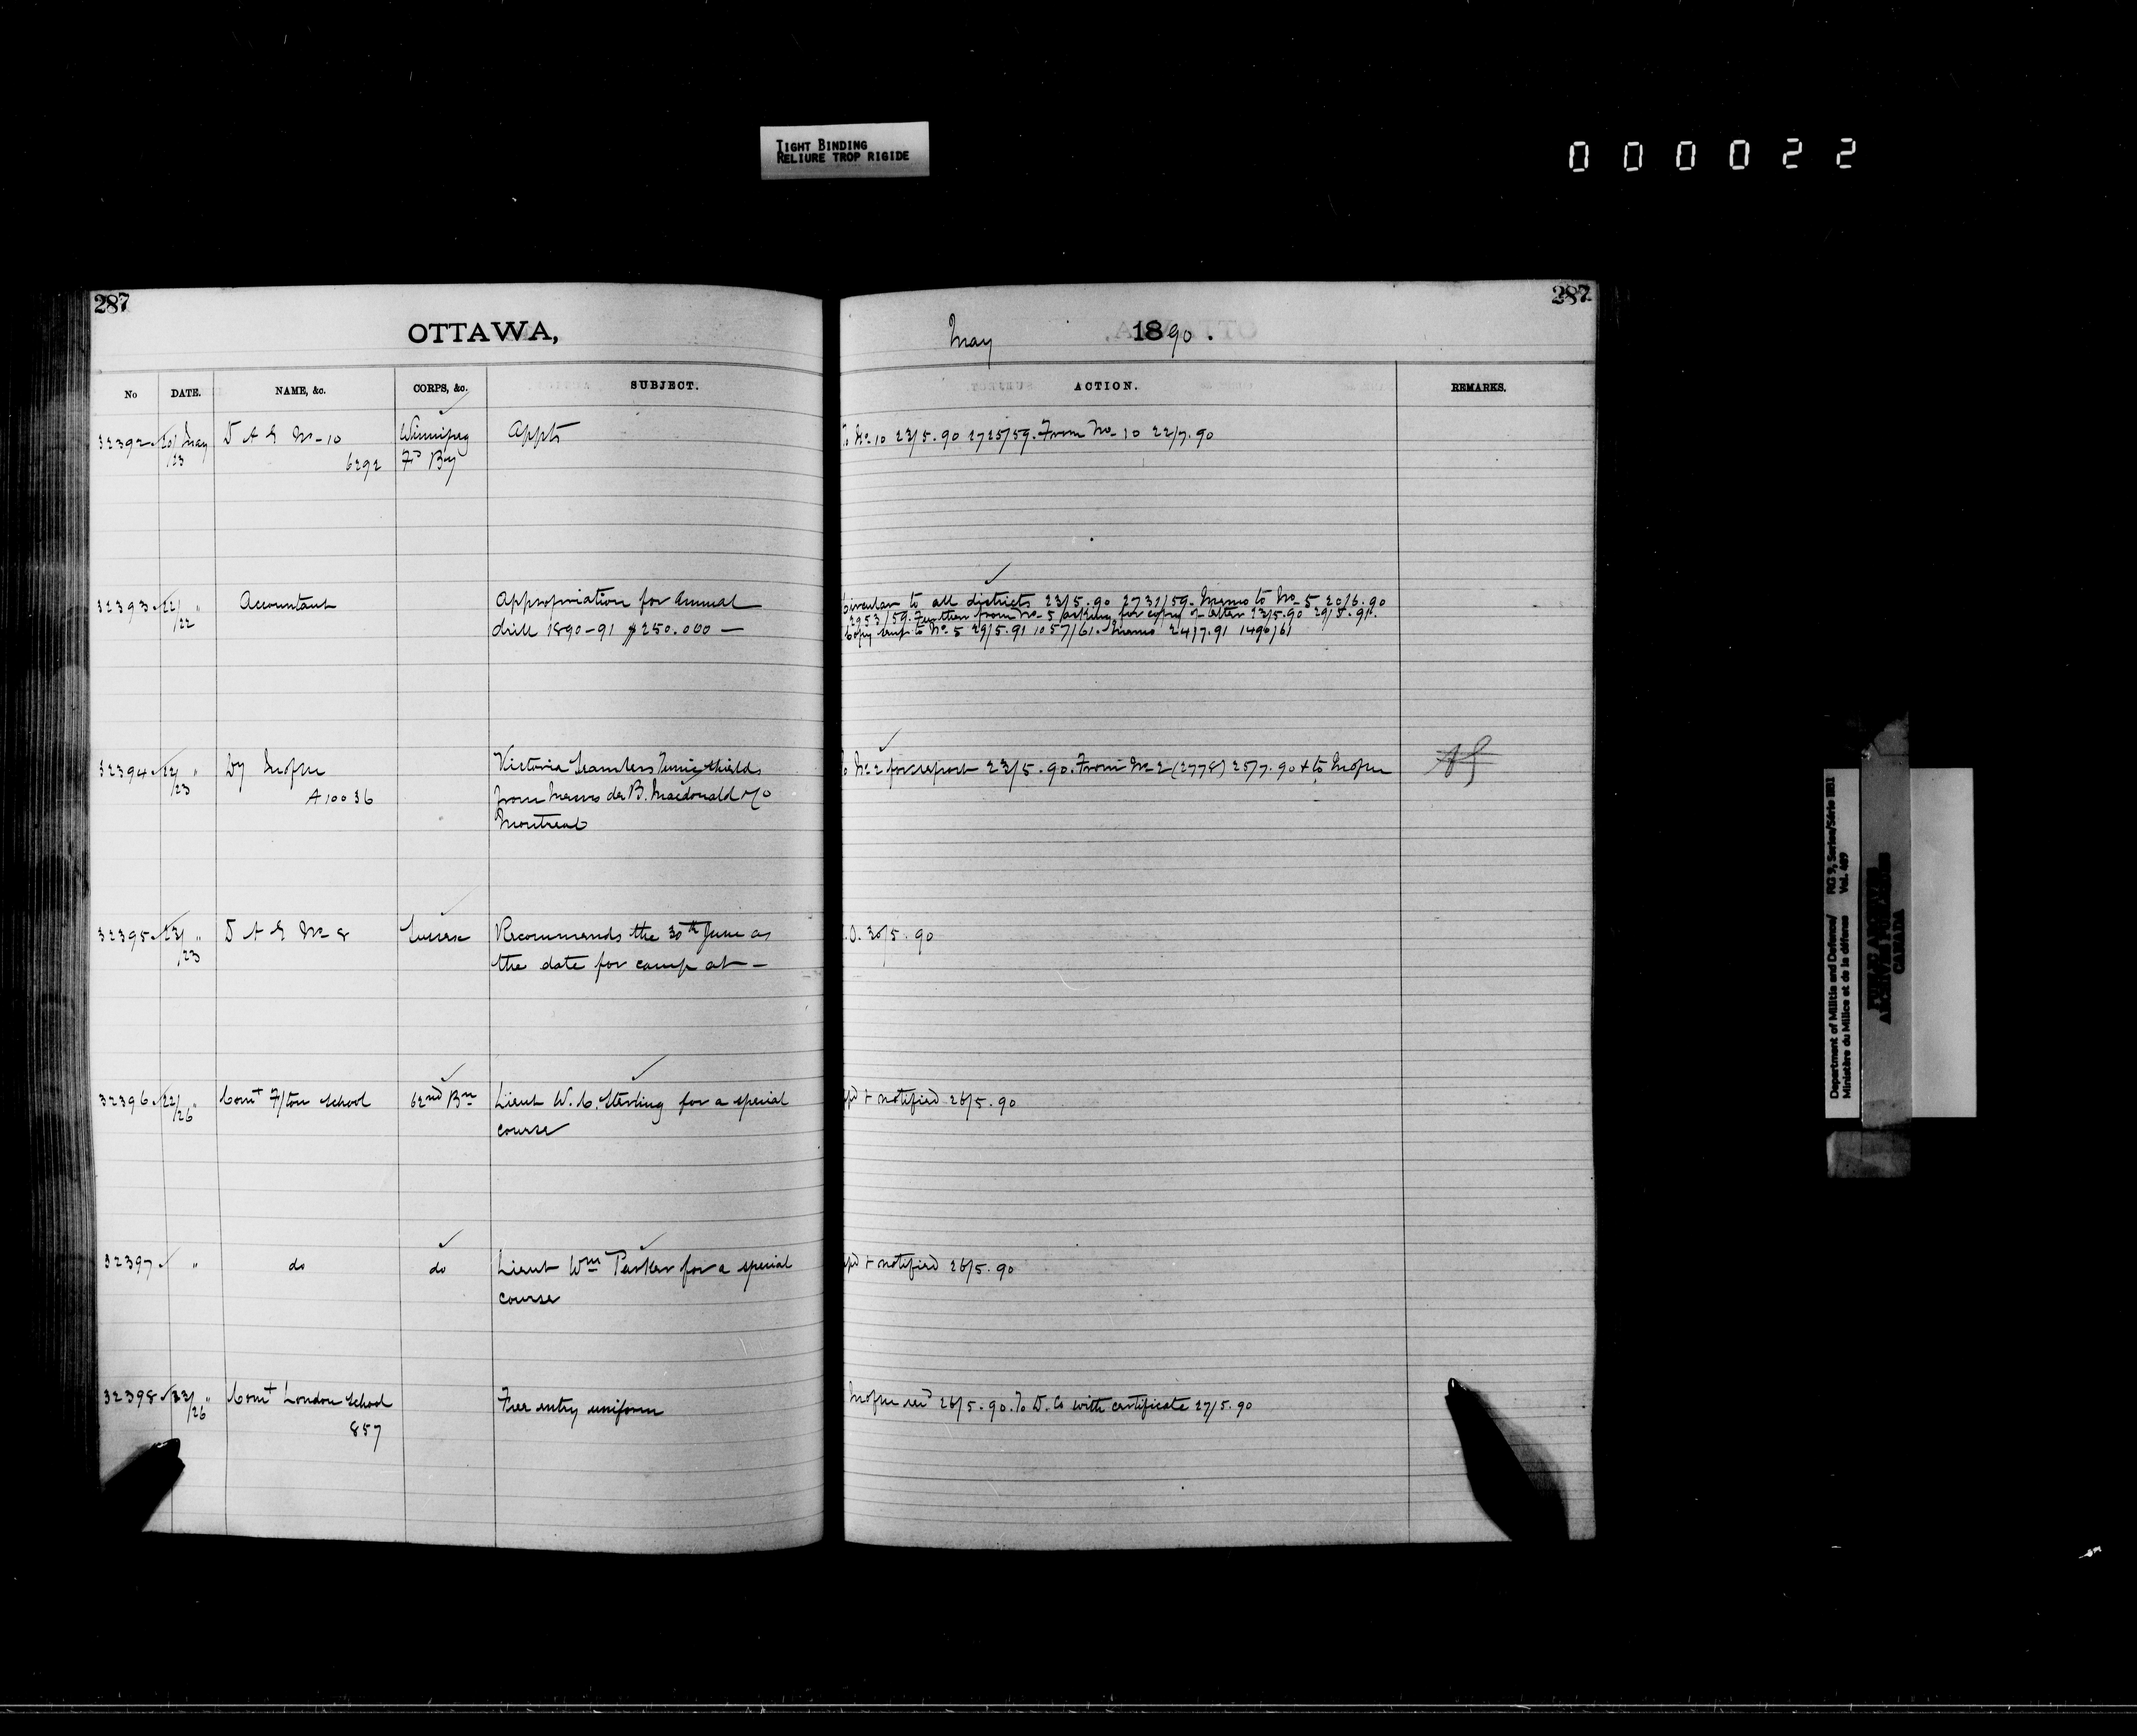 TIGHT BINDING
RELIURE TROP RIGIDE
000022
287
287
OTTAWA,
May 1890.
No DATE. NAME, &c. CORPS, &c. SUBJECT. ACTION. REMARKS.
32392 20/ May D A G No 10 Winnipeg Appts To No 10 23/5.90 2725/59. From No 10 22/7.90
/23 6292 Fd By
32393 22/ " Accountant Appropriation for annual Circular to all districts 23/5.90 2731/59. Memo to No 5 20/6.90
/22 drill 1890-91 $250.000 — 2953/59. Further from No 5 asking for copy of letter 23/5.90 29/5.91.
Copy sent to No 5 29/5.91 1057/61. Memo 24/7.91 1496/61
32394 22/ " Dy Victoria shields To No 2 for report 23/5.90. From No 2 (2778) 25/7.90 + to
/23 A10036 from Messrs de B. Macdonald & Co
Montreal
32395 23/ " D A G No 8 Sussex Recommends the 30th June as G.O. 30/5.90
/23 the date for camp at —
32396 22/ " Comt F/ton School 62nd Bn Lieut W. C. Sterling for a special appd + notified 26/5.90
/26 course
32397 " do do Lieut Wm Parker for a special appd + notified 26/5.90
course
32398 23/ " Comt London School Free entry uniform 26/5.90. To D. Co with certificate 27/5.90
/26 857
Department of Militia and Defence/ RG 9, Series/Série IIB1
Ministère du Milice et de la défense Vol. 469
PUBLIC ARCHIVES
ARCHIVES PUBLIQUES
CANADA